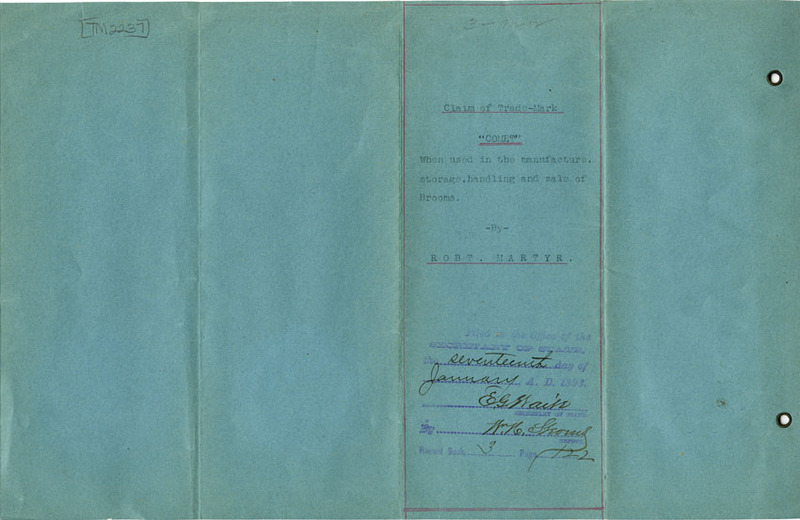 [TM2237]
Claim of Trade-Mark
"COMET"
When used in the manufacture,
storage, handling and sale of
Brooms.
-By-
ROBT. MARTYR.
Filed in the Office of the
SECRETARY OF STATE,
the seventeenth day of
January A. D. 1893.
E.G. Waite
SECRETARY OF STATE
By W.H.
DEPUTY
Record Book 3 Page 122